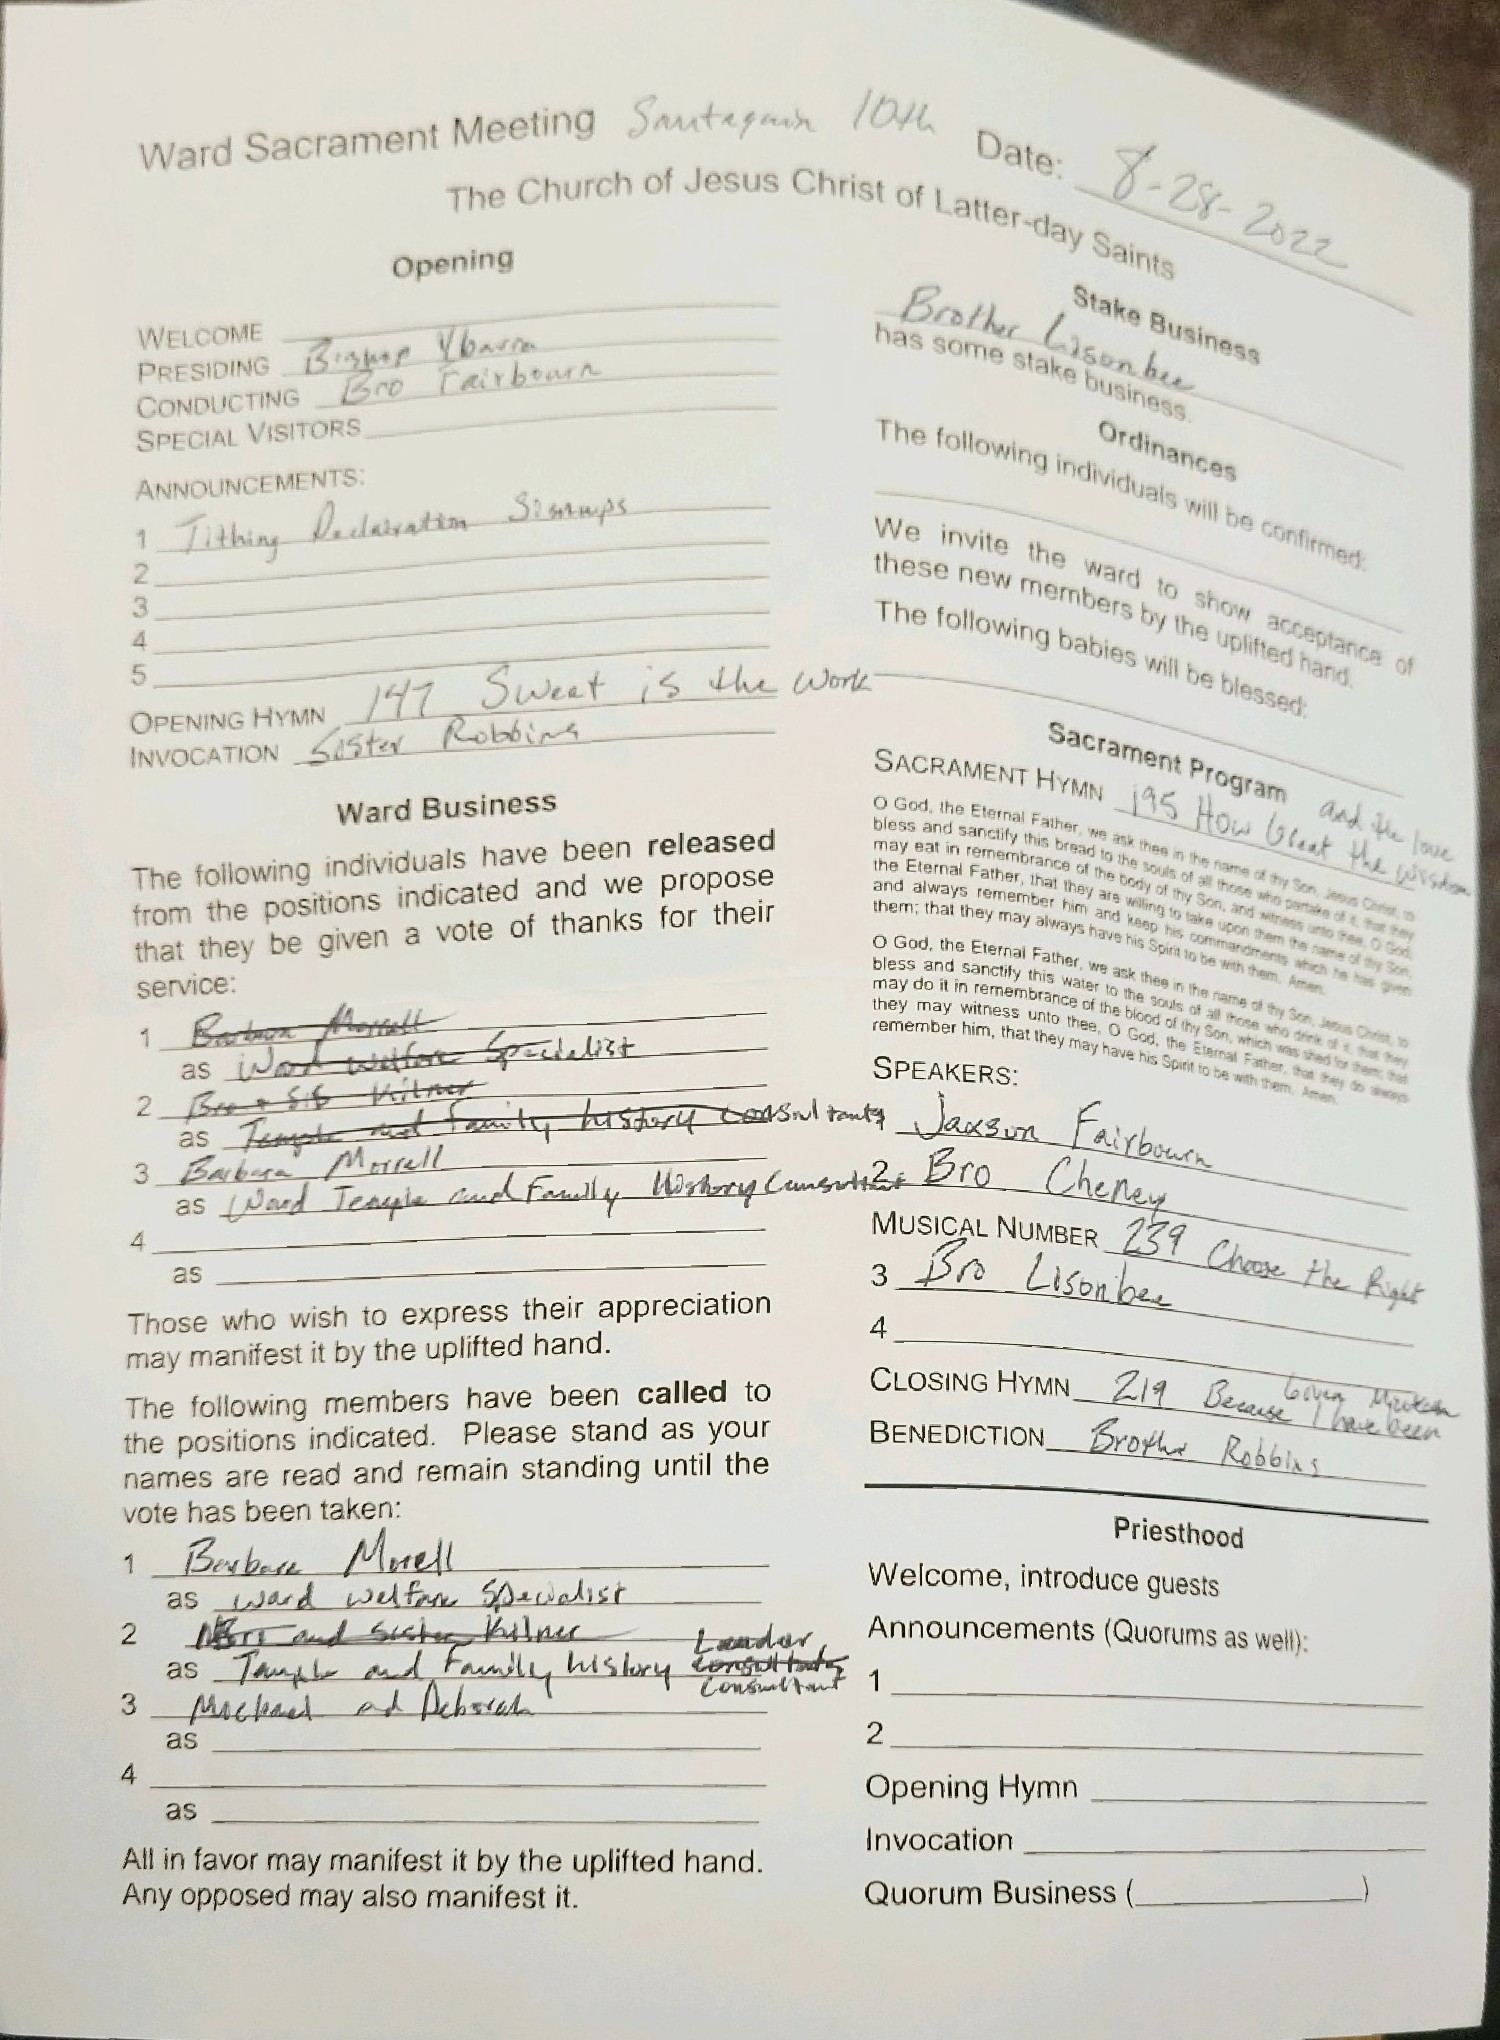 Ward Sacrament Meeting Santaquin 10th Date: 8-28-2022
The Church of Jesus Christ of Latter-day Saints
Opening
WELCOME
PRESIDING Bishop Ybarra
CONDUCTING Bro Fairbourn
SPECIAL VISITORS
ANNOUNCEMENTS:
1 Tithing Declaration Signups
2
3
4
5
OPENING HYMN 147 Sweet is the Work
INVOCATION Sister Robbins
Ward Business
The following individuals have been released
from the positions indicated and we propose
that they be given a vote of thanks for their
service:
1 Barbara Morrell
as Ward Welfare Specialist
2 Bro + Sis Kilner
as Temple and Family history consultants
3 Barbara Morrell
as Ward Temple and Family History Consultant
4
as
Those who wish to express their appreciation
may manifest it by the uplifted hand.
The following members have been called to
the positions indicated. Please stand as your
names are read and remain standing until the
vote has been taken:
1 Barbara Morell
as ward welfare Specialist
2 and Sister Kilner
as Temple and Family history Leader
consultants
consultant
3 Michael and Deborah
as
4
as
All in favor may manifest it by the uplifted hand.
Any opposed may also manifest it.
Stake Business
Brother Lisonbee
has some stake business.
Ordinances
The following individuals will be confirmed:
We invite the ward to show acceptance of
these new members by the uplifted hand.
The following babies will be blessed:
Sacrament Program
SACRAMENT HYMN 195 How Great the Wisdom
and the love
O God, the Eternal Father, we ask thee in the name of thy Son, Jesus Christ, to
bless and sanctify this bread to the souls of all those who partake of it, that they
may eat in remembrance of the body of thy Son, and witness unto thee, O God,
the Eternal Father, that they are willing to take upon them the name of thy Son,
and always remember him and keep his commandments which he has given
them; that they may always have his Spirit to be with them. Amen.
O God, the Eternal Father, we ask thee in the name of thy Son, Jesus Christ, to
bless and sanctify this water to the souls of all those who drink of it, that they
may do it in remembrance of the blood of thy Son, which was shed for them; that
they may witness unto thee, O God, the Eternal Father, that they do always
remember him, that they may have his Spirit to be with them. Amen.
SPEAKERS:
Jaxson Fairbourn
2 Bro Cheney
MUSICAL NUMBER 239 Choose the Right
3 Bro Lisonbee
4
CLOSING HYMN 219 Because I have been
Given Much
BENEDICTION Brother Robbins
Priesthood
Welcome, introduce guests
Announcements (Quorums as well):
1
2
Opening Hymn
Invocation
Quorum Business ( )